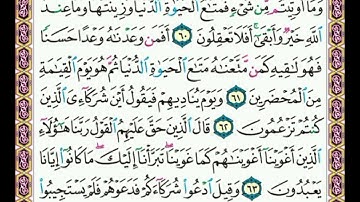 وَمَا أُوتِيتُم مِّن شَىْءٍ فَمَتَـٰعُ ٱلْحَيَوٰةِ ٱلدُّنْيَا وَزِينَتُهَا وَمَا عِندَ
ٱللَّهِ خَيْرٌ وَأَبْقَىٰٓ ۚ أَفَلَا تَعْقِلُونَ ٦٠ أَفَمَن وَعَدْنَـٰهُ وَعْدًا حَسَنًا
فَهُوَ لَـٰقِيهِ كَمَن مَّتَّعْنَـٰهُ مَتَـٰعَ ٱلْحَيَوٰةِ ٱلدُّنْيَا ثُمَّ هُوَ يَوْمَ ٱلْقِيَـٰمَةِ
مِنَ ٱلْمُحْضَرِينَ ٦١ وَيَوْمَ يُنَادِيهِمْ فَيَقُولُ أَيْنَ شُرَكَآءِىَ ٱلَّذِينَ
كُنتُمْ تَزْعُمُونَ ٦٢ قَالَ ٱلَّذِينَ حَقَّ عَلَيْهِمُ ٱلْقَوْلُ رَبَّنَا هَـٰٓؤُلَآءِ
ٱلَّذِينَ أَغْوَيْنَآ أَغْوَيْنَـٰهُمْ كَمَا غَوَيْنَا ۖ تَبَرَّأْنَآ إِلَيْكَ ۖ مَا كَانُوٓا۟ إِيَّانَا
يَعْبُدُونَ ٦٣ وَقِيلَ ٱدْعُوا۟ شُرَكَآءَكُمْ فَدَعَوْهُمْ فَلَمْ يَسْتَجِيبُوا۟